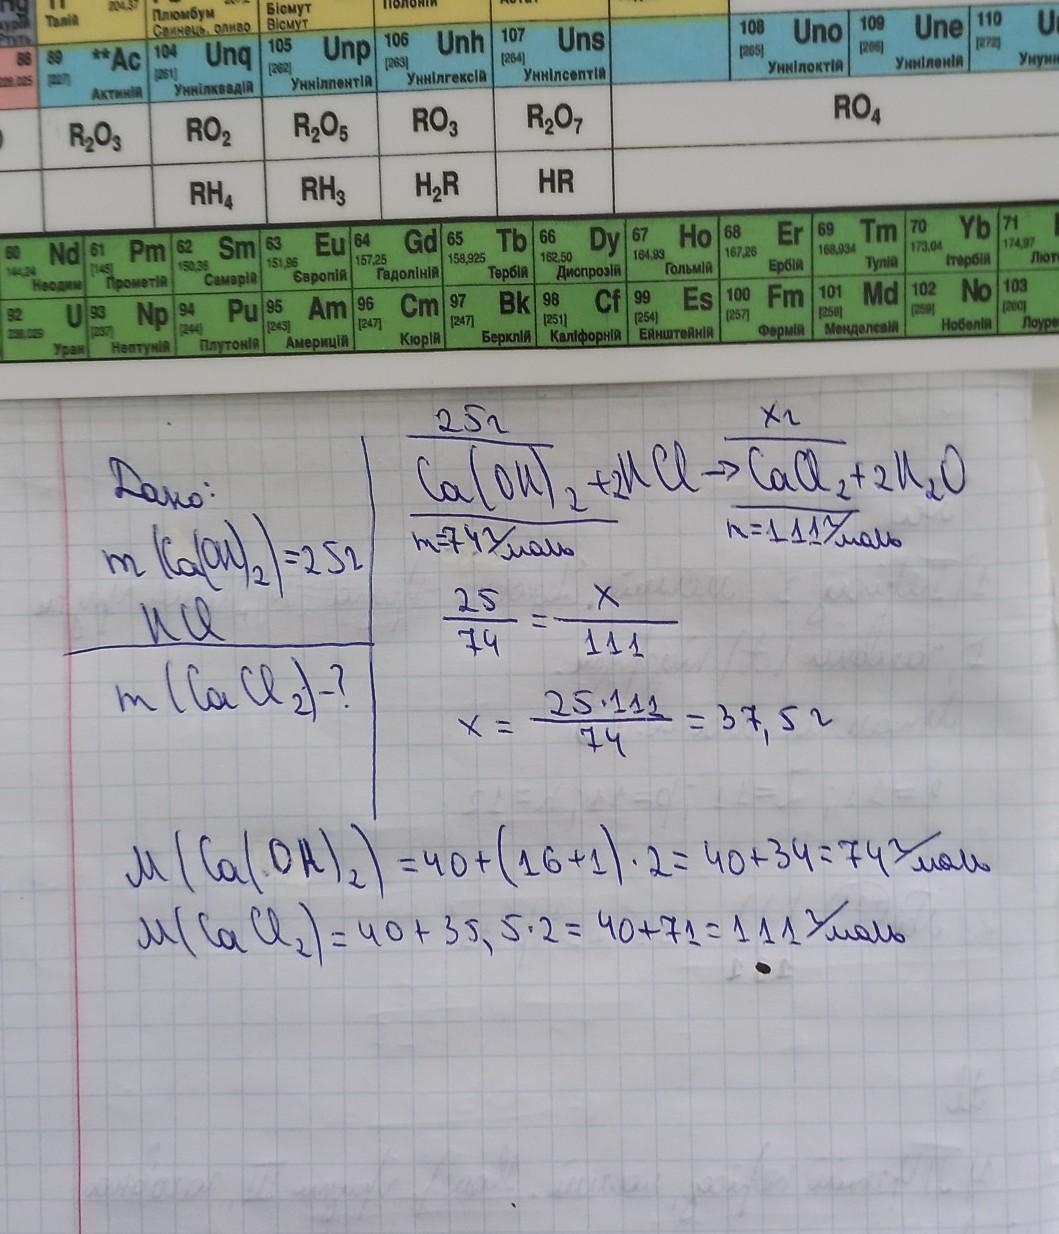 204,37
Талій
Плюмбум
Свинець, оливо
Бісмут
Вісмут
Полоній
ртуть
88 89 **Ac 104 Unq 105 Unp 106 Unh 107 Uns 108 Uno 109 Une 110
[227] [261] [262] [263] [264] [265] [266] [272]
Актиній Уннілквадій Уннілпентій Уннілгексій Уннілсептій Уннілоктій Унніленій
R₂O₃ RO₂ R₂O₅ RO₃ R₂O₇ RO₄
RH₄ RH₃ H₂R HR
60 Nd 61 Pm 62 Sm 63 Eu 64 Gd 65 Tb 66 Dy 67 Ho 68 Er 69 Tm 70 Yb 71
144,24 [145] 150,36 151,96 157,25 158,925 162,50 164,93 167,26 168,934 173,04 174,97
Неодим Прометій Самарій Європій Гадоліній Тербій Диспрозій Гольмій Ербій Тулій Ітербій
92 U 93 Np 94 Pu 95 Am 96 Cm 97 Bk 98 Cf 99 Es 100 Fm 101 Md 102 No 103
[237] [244] [243] [247] [247] [251] [254] [257] [258] [259] [260]
Уран Нептуній Плутоній Америцій Кюрій Берклій Каліфорній Ейнштейній Фермій Менделевій Нобелій
25г xг
Дано: Ca(OH)₂ + 2HCl → CaCl₂ + 2H₂O
m=74г/моль m=111г/моль
m(Ca(OH)₂)=25г
HCl
25/74 = x/111
m(CaCl₂)-?
x = 25·111/74 = 37,5г
M(Ca(OH)₂) = 40+(16+1)·2 = 40+34 = 74г/моль
M(CaCl₂) = 40+35,5·2 = 40+71 = 111г/моль